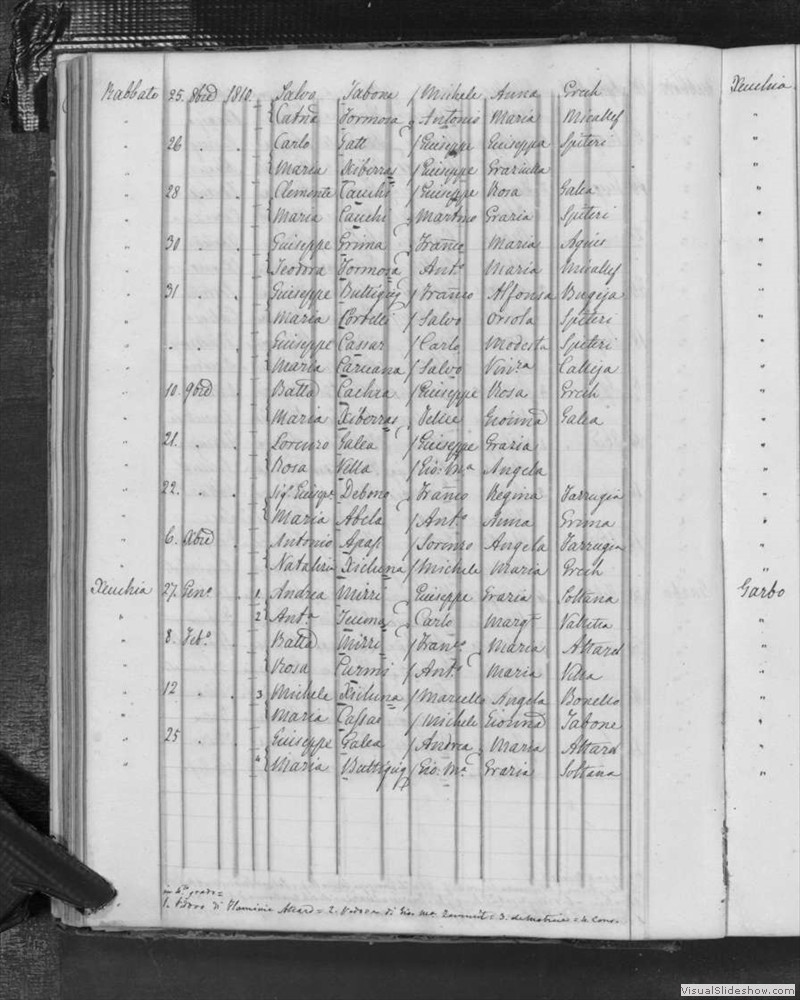 Rabbato 25. 8bre 1810. Salvo Tabone Michele Anna Grech Xeuchia
Catna Formosa Antonio Maria Micallef
26 . . Carlo Gatt Giuseppe Giuseppa Spiteri
Maria Xiberras Giuseppe Graziulla
28 . . Clemente Cauchi Giuseppe Rosa Galea
Maria Cauchi Martino Grazia Spiteri
30 . . Giuseppe Grima Franco Maria Agius
Teodora Formosa Anto Maria Micallef
31 . . Giuseppe Buttigieg Franco Alfonsa Bugeja
Maria Cordelli Salvo Orsola Spiteri
. . . Giuseppe Cassar Carlo Modesta Spiteri
Maria Caruana Salvo Vinza Calleja
10. 9bre Batta Cachia Giuseppe Rosa Grech
Maria Xiberras Felice Gioanna Galea
21. . . Lorenzo Galea Giuseppe Grazia
Rosa Vella Gio: Ma Angela
22. . . Sigr Giuseppe Debono Franco Regina Farrugia
Maria Abela Anto Anna Grima
6. Xbre . Antonio Apap Lorenzo Angela Farrugia
Natalizia Xicluna Michele Maria Grech
Xeuchia 27. Geno . 1. Andrea Mizzi Giuseppe Grazia Soltana Garbo
2 Anta Teuma Carlo Margta Valletta
8. Febo . Batta Mizzi Franco Maria Attard
Rosa Curmi Anto Maria Vella
12 . . 3 Michele Xicluna Marcello Angela Bonello
Maria Cassar Michele Gioanna Tabone
25 . . Giuseppe Galea Andrea Maria Attard
4 Maria Buttigieg Gio: Ma Grazia Soltana
in 4to grado =
1. Vdovo di Flaminia Attard = 2. Vedova di Gio: Zammit = 3. = 4. Cons.
VisualSlideshow.com